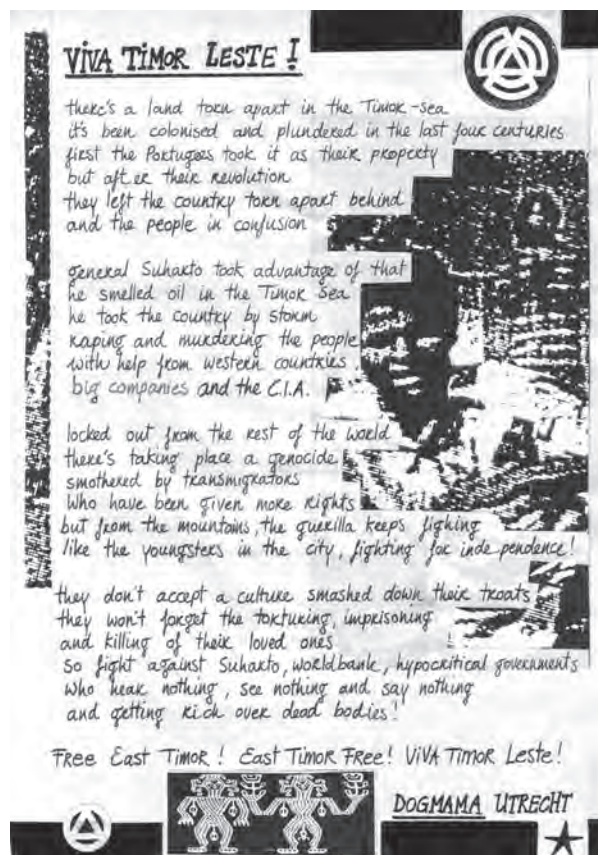 VIVA TIMOR LESTE!
there's a land torn apart in the Timor-sea
it's been colonised and plundered in the last four centuries
first the Portugees took it as their property
but after their revolution
they left the country torn apart behind
and the people in confusion
general Suharto took advantage of that
he smelled oil in the Timor Sea
he took the country by storm
raping and murdering the people
with help from western countries,
big companies and the C.I.A.
locked out from the rest of the world
there's taking place a genocide
smothered by transmigrators
who have been given more rights
but from the mountains, the guerilla keeps fighing
like the youngsters in the city, fighting for independence!
they don't accept a culture smashed down their troats
they won't forget the torturing, imprisoning
and killing of their loved ones
so fight against Suharto, worldbank, hypocritical governments
who hear nothing, see nothing and say nothing
and getting rich over dead bodies!
FREE EAST TIMOR! EAST TIMOR FREE! VIVA TIMOR LESTE!
DOGMAMA UTRECHT